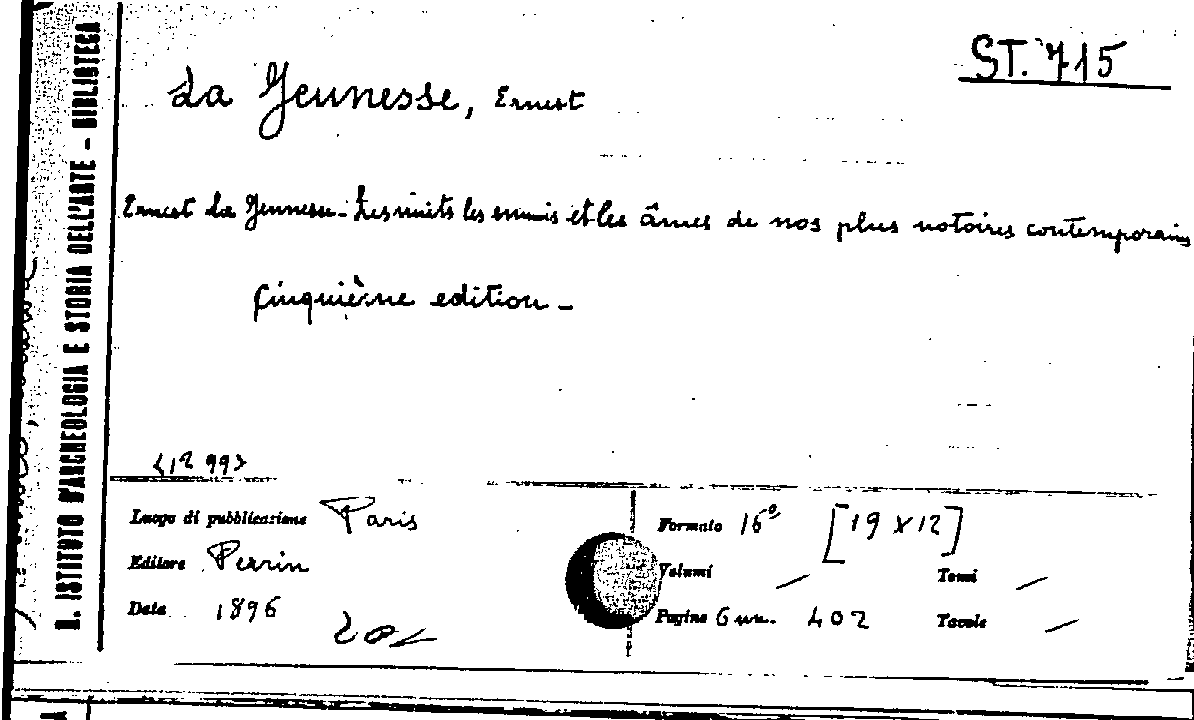 ST. 715
La Jeunesse, Ernest
Ernest La Jeunesse - Les nuits les ennuis et les âmes de nos plus notoires contemporains
Cinquième edition -
<12 99>
Luogo di pubblicazione Paris
Editore Perrin
Data 1896
Formato 16º [19 x 12]
Volumi — Tomi —
Pagine 6 nn. 402 Tavole —
R. ISTITUTO D'ARCHEOLOGIA E STORIA DELL'ARTE - BIBLIOTECA